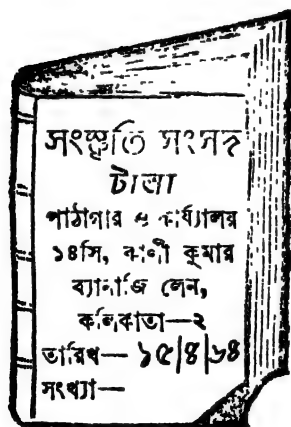 সংস্কৃতি সংসদ
টালা
পাঠাগার ও কার্য্যালয়
১৪সি, কালী কুমার
ব্যানার্জি লেন,
কলিকাতা—২
তারিখ— ১৫/৪/৬৪
সংখ্যা—